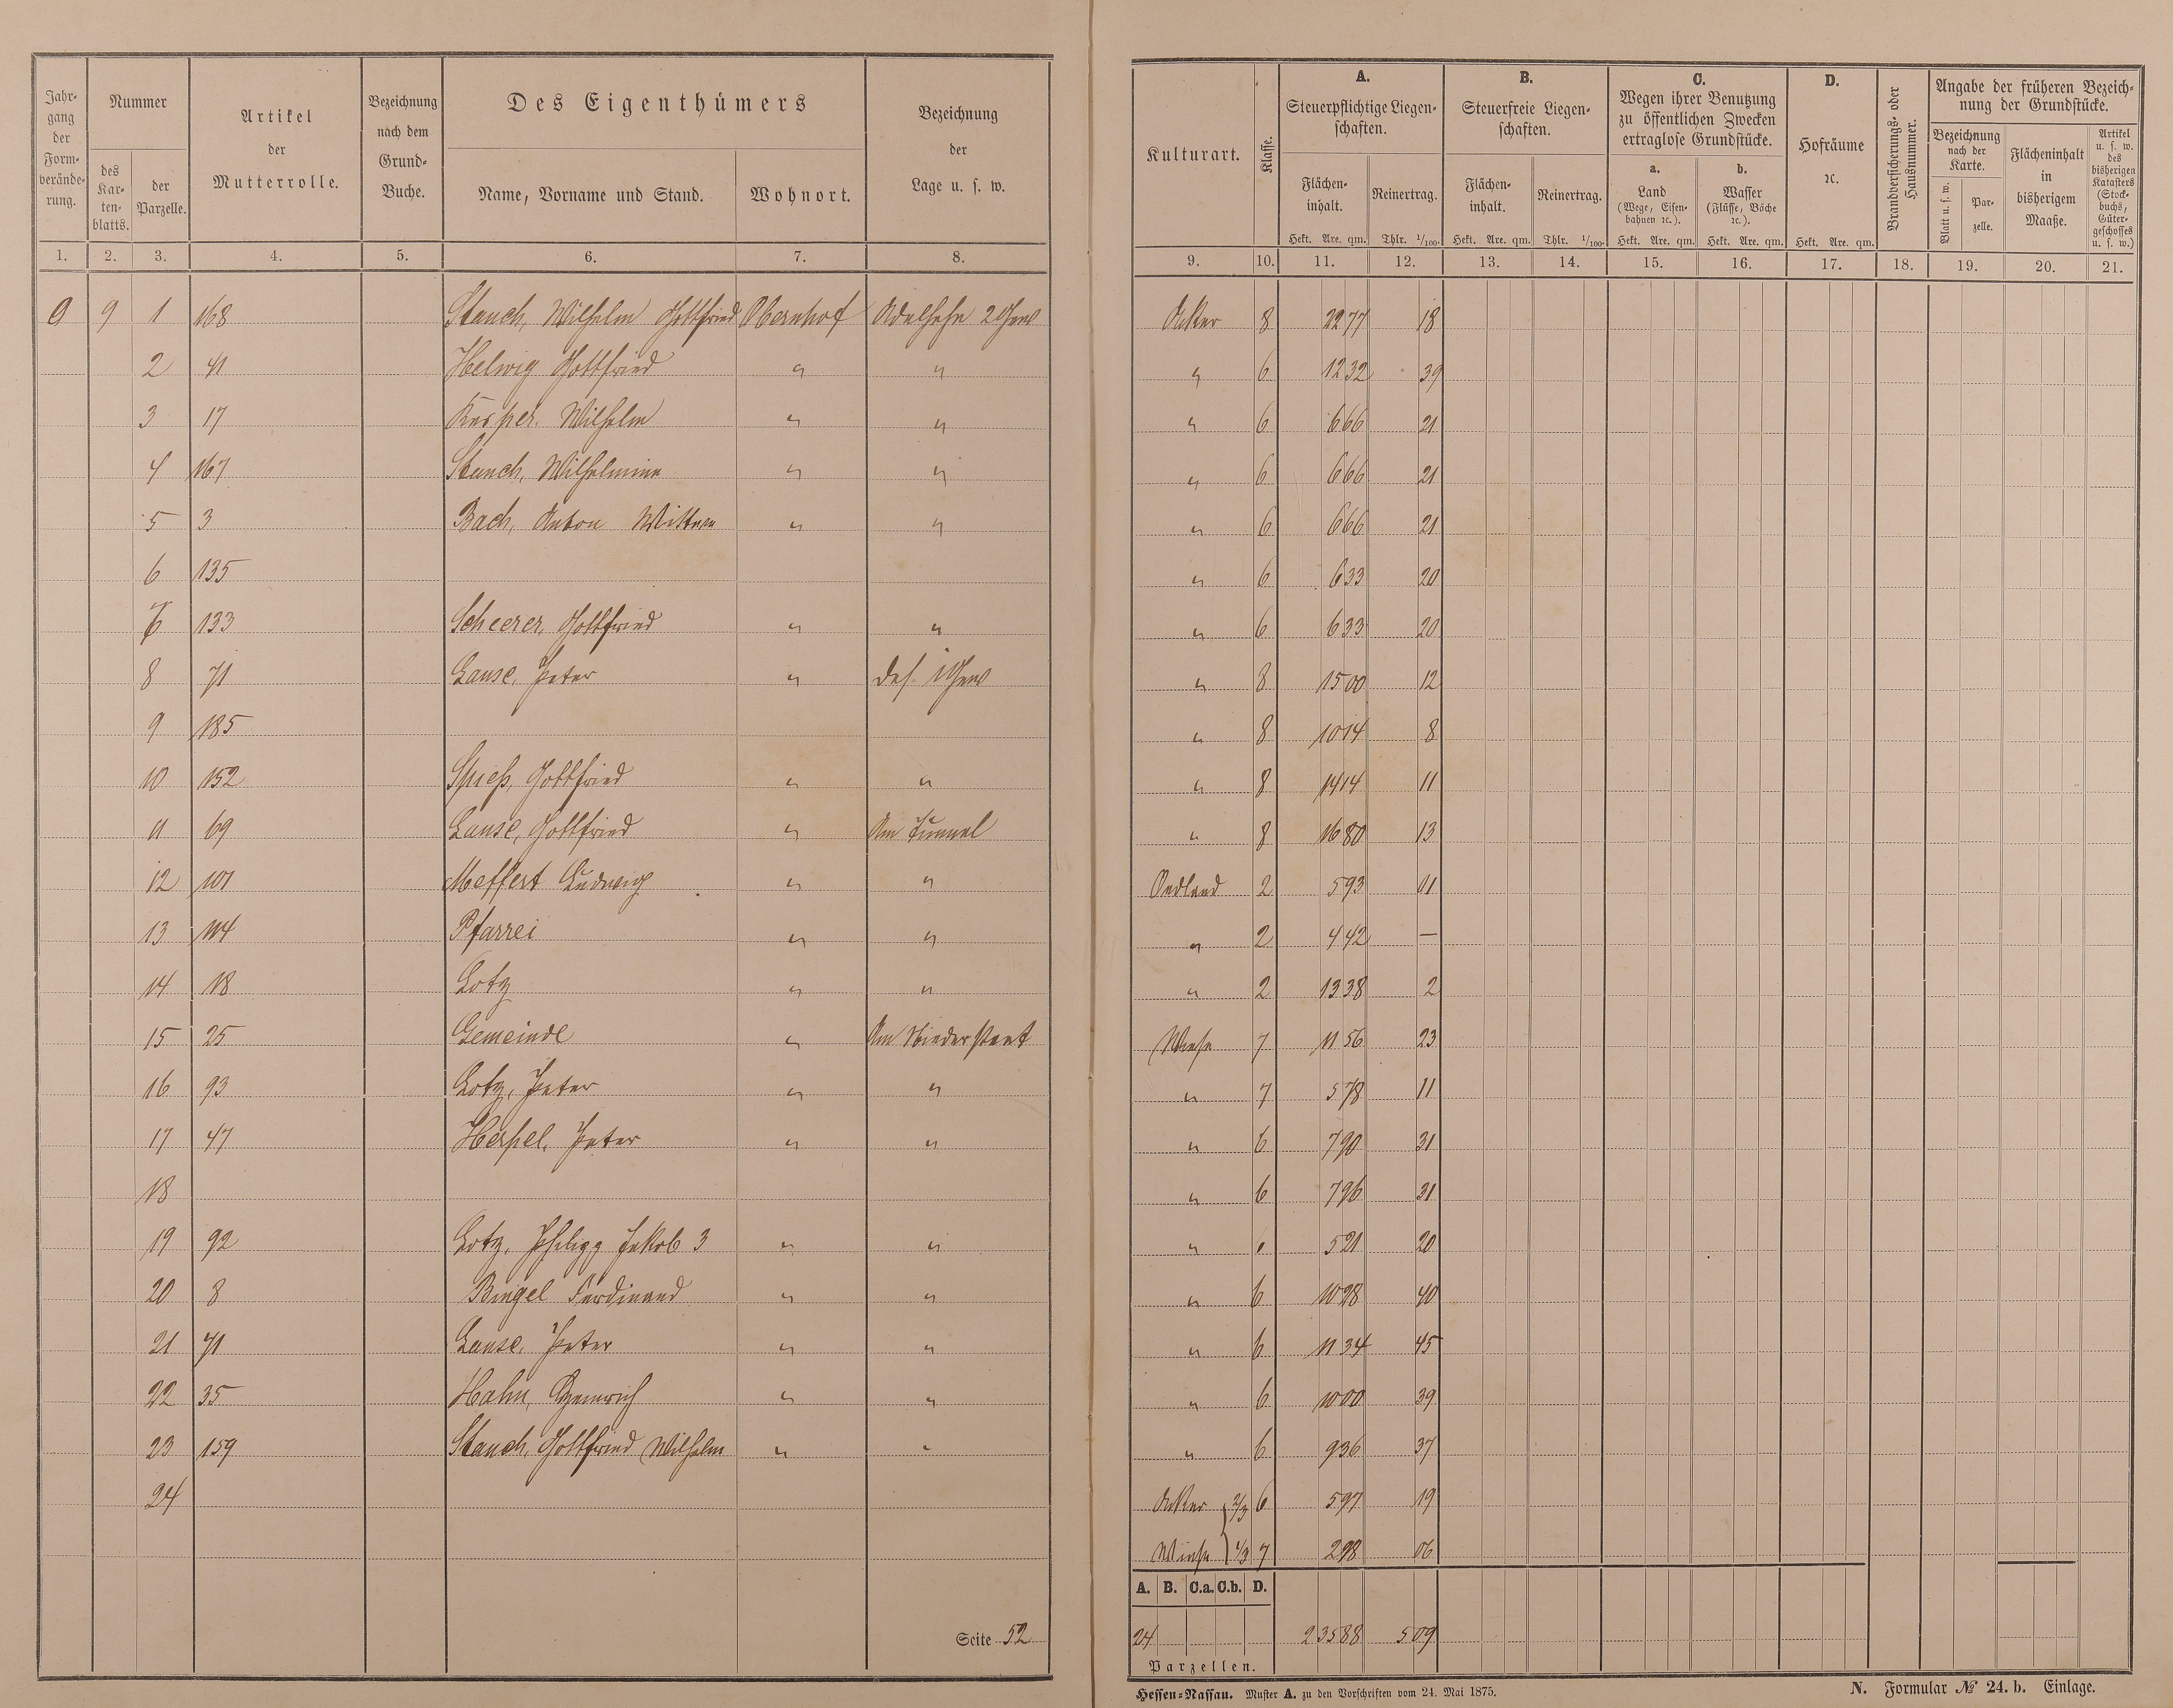 Jahrgang der Formverände-rung.
Nummer
des Kar-ten-blatts.
der Parzelle.
Artikel der Mutterrolle.
Bezeichnung nach dem Grund-Buche.
Des Eigenthümers
Name, Vorname und Stand.
Wohnort.
Bezeichnung der Lage u. s. w.
1. 2. 3. 4. 5. 6. 7. 8.
9 9 1 168 Stauch, Wilhelm Gottfried Obernhof 2 Gew
2 41 Helwig Gottfried " "
3 17 Wilhelm " "
4 167 Stauch, Wilhelmine " "
5 3 Bach, Anton Wittwe " "
6 135
7 133 Scheerer, Gottfried " "
8 71 Lause, Peter " das. 1 Gew
9 185
10 152 Spieß, Gottfried " "
11 69 Lause, Gottfried " Am Tunnel
12 101 Meffert Ludwig " "
13 114 Pfarrei " "
14 18 Lotz " "
15 25 Gemeinde " Am
16 93 Lotz, Peter " "
17 47 Peter " "
18
19 92 Lotz, Philipp Jakob 3 " "
20 8 Bingel Ferdinand " "
21 71 Lause, Peter " "
22 35 Hahn, Heinrich " "
23 159 Stauch, Gottfried Wilhelm " "
24
Seite 52
Kulturart.
Klasse.
A.
Steuerpflichtige Liegen-schaften.
Flächen-inhalt.
Hekt. Are. qm.
Reinertrag.
Thlr. 1/100.
B.
Steuerfreie Liegen-schaften.
Flächen-inhalt.
Hekt. Are. qm.
Reinertrag.
Thlr. 1/100.
C.
Wegen ihrer Benutzung zu öffentlichen Zwecken ertraglose Grundstücke.
a.
Land
(Wege, Eisen-bahnen ꝛc.).
Hekt. Are. qm.
b.
Wasser
(Flüsse, Bäche ꝛc.).
Hekt. Are. qm.
D.
Hofräume ꝛc.
Hekt. Are. qm.
Brandversicherungs- oder Hausnummer.
Angabe der früheren Bezeich-nung der Grundstücke.
Bezeichnung nach der Karte.
Blatt u. s. w.
Par-zelle.
Flächeninhalt in bisherigem Maaße.
Artikel u. s. w. des bisherigen Katasters (Stock-buchs, Güter-geschosses u. s. w.)
9. 10. 11. 12. 13. 14. 15. 16. 17. 18. 19. 20. 21.
Acker 8 22 77 18
" 6 12 32 39
" 6 6 66 21
" 6 6 66 21
" 6 6 66 21
" 6 6 33 20
" 6 6 33 20
" 8 15 00 12
" 8 10 14 8
" 8 14 14 11
" 8 16 80 13
Oedland 2 5 93 01
" 2 4 42 —
" 2 13 38 2
Wiese 7 11 56 23
" 7 5 78 11
" 6 7 90 31
" 6 7 96 31
" 5 21 20
" 6 10 28 40
" 6 11 34 45
" 6 10 00 39
" 6 9 36 37
Acker 2/3 6 5 97 19
Wiese 1/3 7 2 98 06
A. B. C.a. C.b. D.
24 2 35 88 5 09
Parzellen.
Hessen-Nassau. Muster A. zu den Vorschriften vom 24. Mai 1875.
N. Formular № 24. b. Einlage.